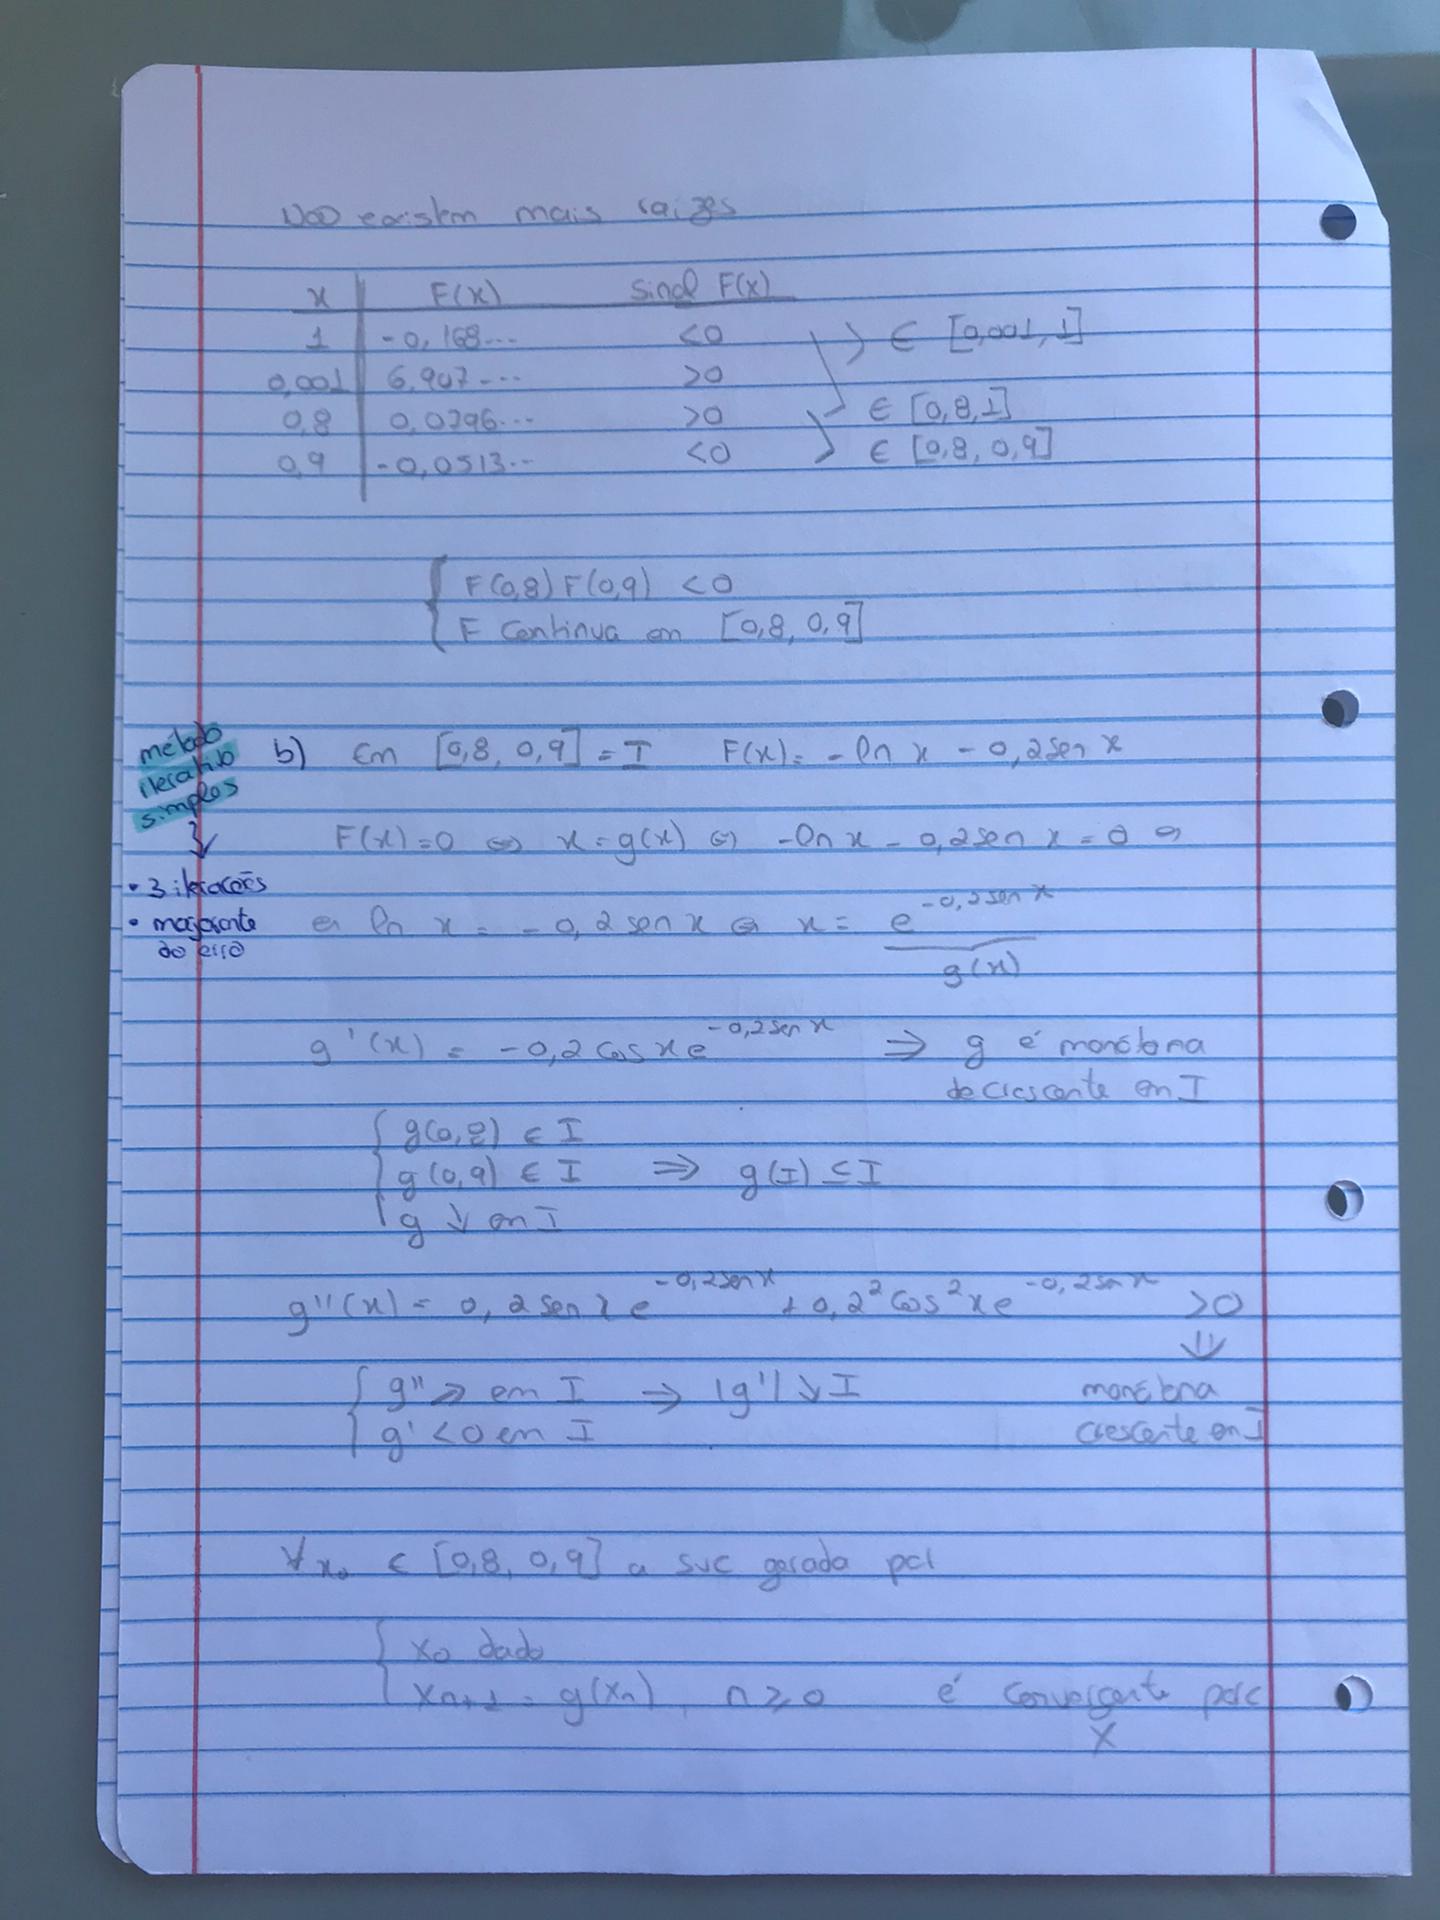 Não existem mais raizes
x F(x) sinal F(x)
1 -0,168... <0 ∈ [0,001, 1]
0,001 6,907... >0
0,8 0,0796... >0 ∈ [0,8, 1]
0,9 -0,0513... <0 ∈ [0,8, 0,9]
F(0,8) F(0,9) < 0
F continua em [0,8, 0,9]
método
iterativo
simples
• 3 iterações
• majorante
do erro
b) Em [0,8, 0,9] = I F(x) = - ln x - 0,2 sen x
F(x) = 0 ⇔ x = g(x) ⇔ -ln x - 0,2 sen x = 0 ⇔
⇔ ln x = - 0,2 sen x ⇔ x = e^{-0,2 sen x}
g(x)
g'(x) = -0,2 cos x e^{-0,2 sen x} ⇒ g é monótona
decrescente em I
g(0,8) ∈ I
g(0,9) ∈ I ⇒ g(I) ⊆ I
g ↓ em I
g''(x) = 0,2 sen x e^{-0,2 sen x} + 0,2² cos² x e^{-0,2 sen x} > 0
⇓
g'' > em I ⇒ |g'| ↓ I monótona
g' < 0 em I crescente em I
∀x₀ ∈ [0,8, 0,9] a suc gerada por
x₀ dado
xₙ₊₁ = g(xₙ), n ≥ 0 é convergente para
X